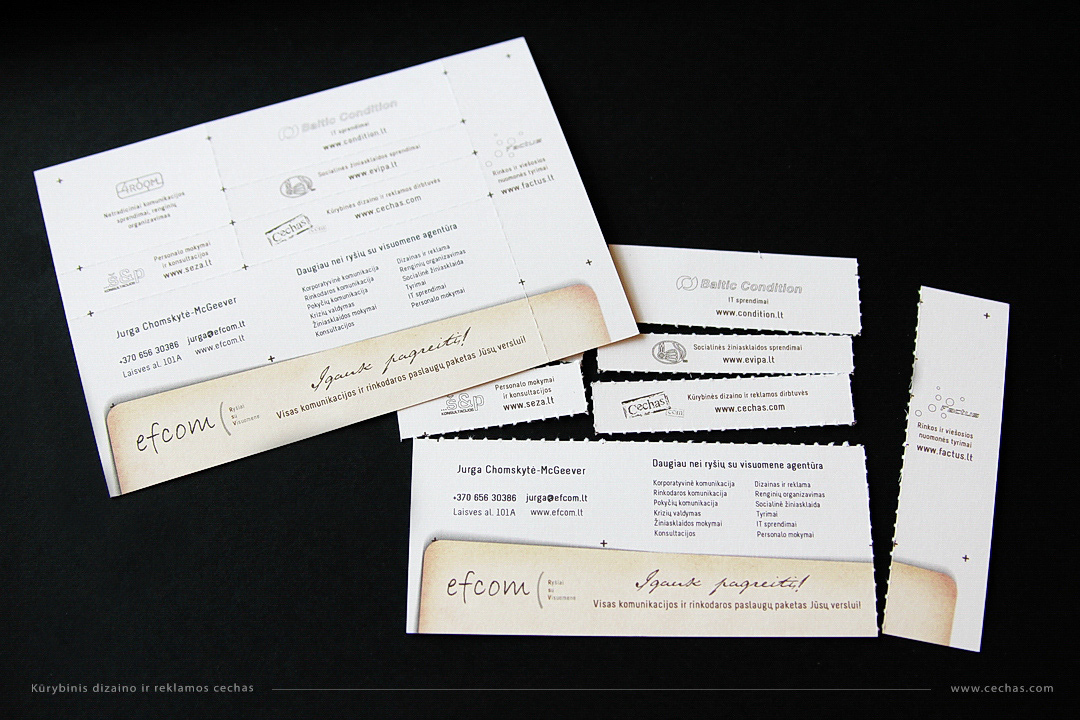 Baltic Condition
IT sprendimai
www.condition.lt
4ROOM
Netradiciniai komunikacijos
sprendimai, renginių
organizavimas
Socialinės žiniasklaidos sprendimai
www.evipa.lt
Factus
Rinkos ir viešosios
nuomonės tyrimai
www.factus.lt
Cechas
.com
Kūrybinės dizaino ir reklamos dirbtuvės
www.cechas.com
š&p
KONSULTACIJOS
Personalo mokymai
ir konsultacijos
www.seza.lt
Jurga Chomskytė-McGeever
+370 656 30386 jurga@efcom.lt
Laisves al. 101A www.efcom.lt
Daugiau nei ryšių su visuomene agentūra
Korporatyvinė komunikacija Dizainas ir reklama
Rinkodaros komunikacija Renginių organizavimas
Pokyčių komunikacija Socialinė žiniasklaida
Krizių valdymas Tyrimai
Žiniasklaidos mokymai IT sprendimai
Konsultacijos Personalo mokymai
efcom
Ryšiai
su
Visuomene
Įgauk pagreitį!
Visas komunikacijos ir rinkodaros paslaugų paketas Jūsų verslui!
Baltic Condition
IT sprendimai
www.condition.lt
Socialinės žiniasklaidos sprendimai
www.evipa.lt
š&p
KONSULTACIJOS
Personalo mokymai
ir konsultacijos
www.seza.lt
Cechas
.com
Kūrybinės dizaino ir reklamos dirbtuvės
www.cechas.com
Factus
Rinkos ir viešosios
nuomonės tyrimai
www.factus.lt
Jurga Chomskytė-McGeever
+370 656 30386 jurga@efcom.lt
Laisves al. 101A www.efcom.lt
Daugiau nei ryšių su visuomene agentūra
Korporatyvinė komunikacija Dizainas ir reklama
Rinkodaros komunikacija Renginių organizavimas
Pokyčių komunikacija Socialinė žiniasklaida
Krizių valdymas Tyrimai
Žiniasklaidos mokymai IT sprendimai
Konsultacijos Personalo mokymai
efcom
Ryšiai
su
Visuomene
Įgauk pagreitį!
Visas komunikacijos ir rinkodaros paslaugų paketas Jūsų verslui!
Kūrybinis dizaino ir reklamos cechas
www.cechas.com